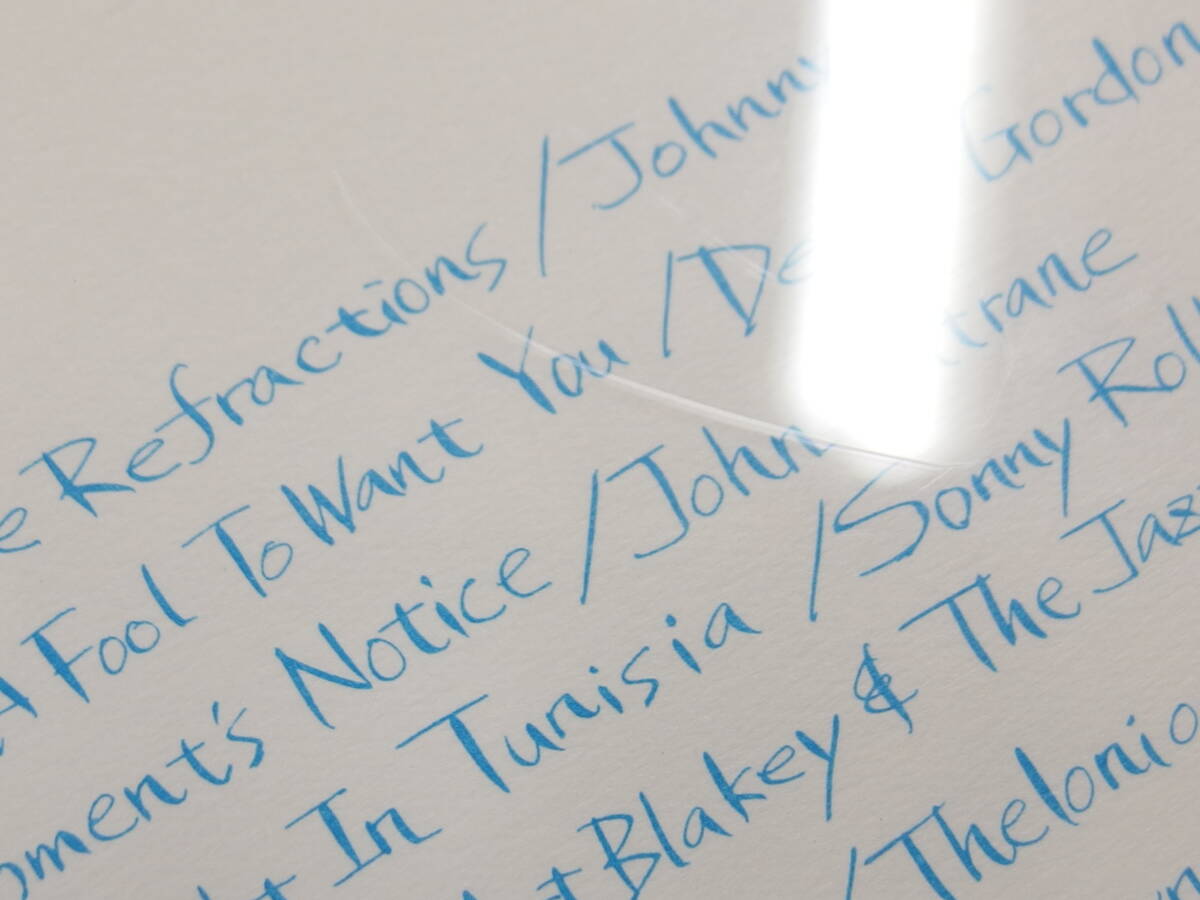 Refractions / Johnny
A Fool To Want You / De Gordon
oment's Notice / John trane
In Tunisia / Sonny Roll
Blakey & The Jaz
/ Thelonio